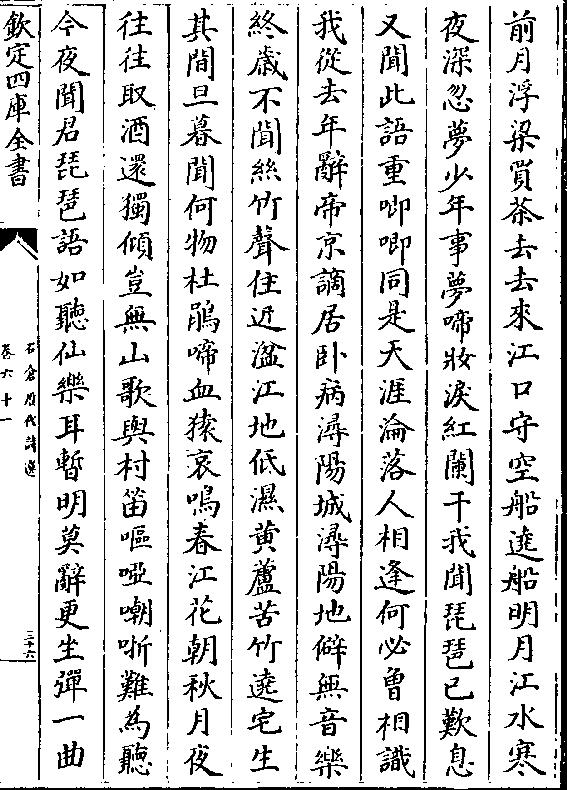 前月浮梁買茶去去來江口守空船遶船明月江水寒
夜深忽夢少年事夢啼妝淚紅闌干我聞琵琶已歎息
又聞此語重唧唧同是天涯淪落人相逢何必曾相識
我從去年辭帝京謫居卧病潯陽城潯陽地僻無音樂
終歲不聞絲竹聲住近湓江地低濕黄蘆苦竹遶宅生
其間旦暮聞何物杜鵑啼血猿哀鳴春江花朝秋月夜
往往取酒還獨傾豈無山歌與村笛嘔啞嘲哳難為聽
今夜聞君琵琶語如聽仙樂耳暫明莫辭更坐彈一曲
欽定四庫全書
石倉歴代詩選
卷六十一
三十六